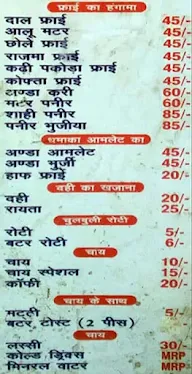 फ्राई का हंगामा
दाल फ्राई 45/-
आलू मटर 45/-
छोले फ्राई 45/-
राजमा फ्राई 45/-
कढ़ी पकोड़ा फ्राई 45/-
कोफ्ता फ्राई 45/-
अण्डा करी 60/-
मटर पनीर 60/-
शाही पनीर 85/-
पनीर भुजीया 85/-
धमाका आमलेट का
अण्डा आमलेट 45/-
अण्डा भुर्जी 45/-
हाफ फ्राई 20/-
दही का खजाना
दही 20/-
रायता 25/-
चुलबुली रोटी
रोटी 5/-
बटर रोटी 6/-
चाय
चाय 10/-
चाय स्पेशल 15/-
कॉफी 20/-
चाय के साथ
मट्ठी 5/-
बटर टोस्ट (2 पीस)
चाय
लस्सी 30/-
कोल्ड ड्रिंक्स MRP
मिनरल वाटर MRP